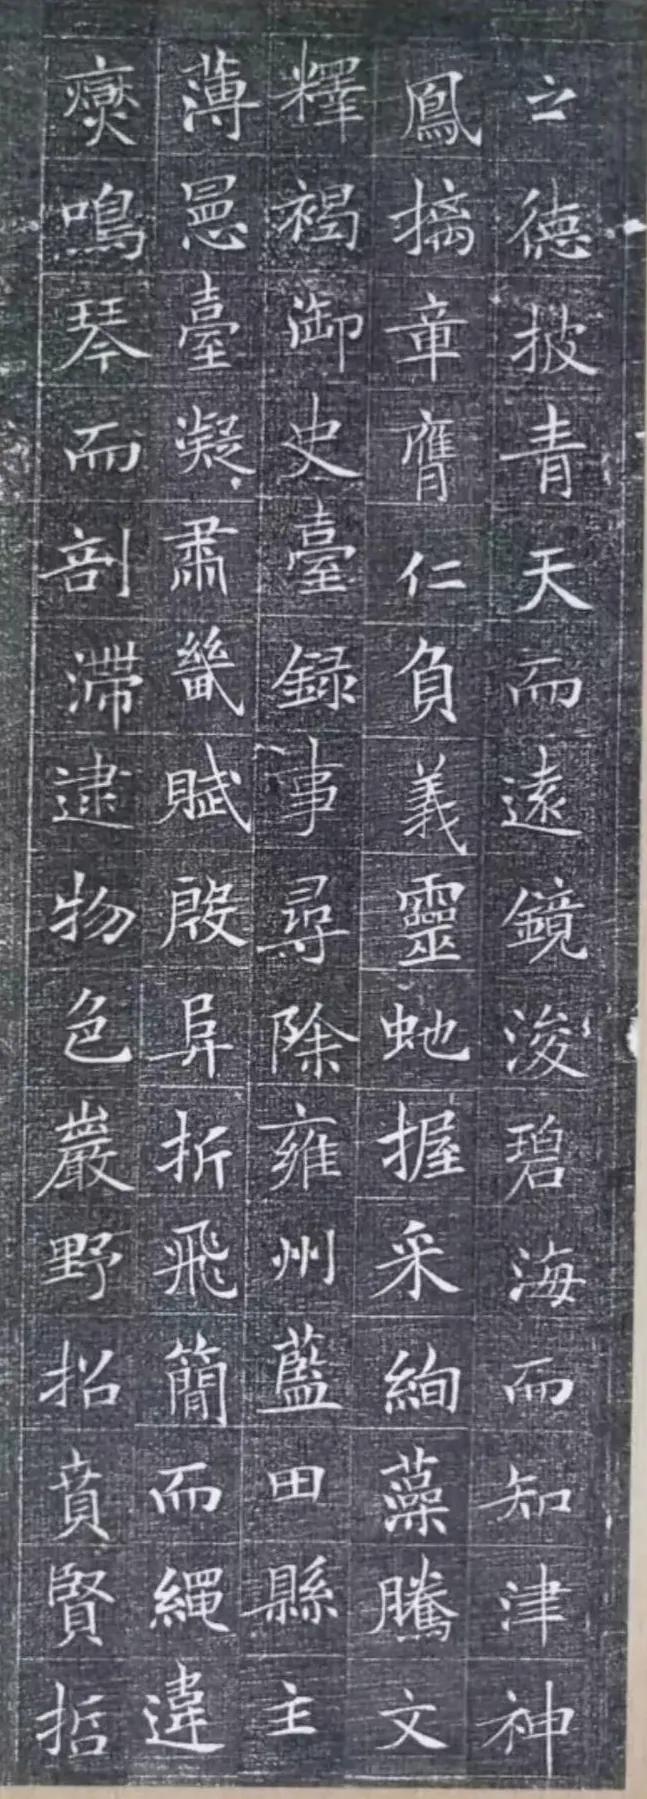 之德披青天而遠鏡浚碧海而知津神
鳳摛章膺仁負義靈虵握采絢藻騰文
釋褐御史臺錄事尋除雍州藍田縣主
薄罳臺凝肅畿賦殷阜折飛簡而繩違
爕鳴琴而剖滯逮物色巖野招賁賢哲